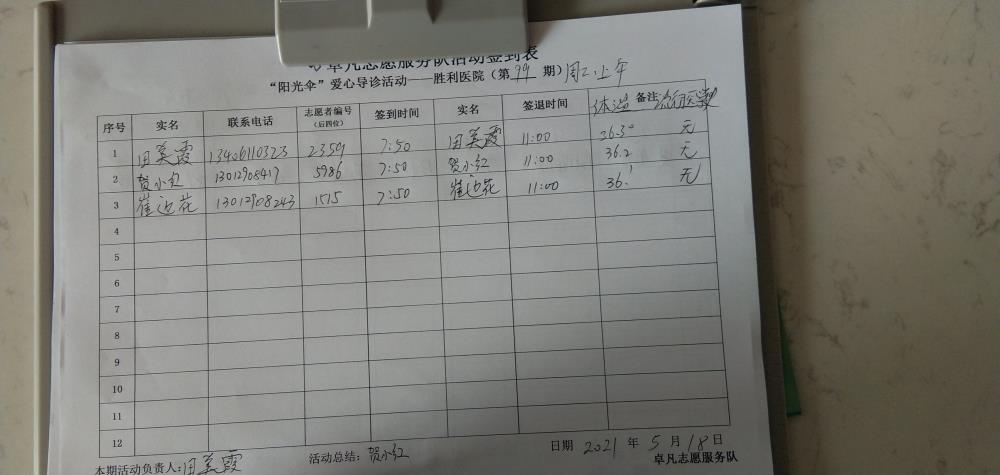 卓凡志愿服务队活动签到表
“阳光伞”爱心导诊活动——胜利医院（第99期）周二.上午
序号 实名 联系电话 志愿者编号（后四位） 签到时间 实名 签退时间 体温 备注
1 田美霞 13406110323 2359 7:50 田美霞 11:00 36.3° 无
2 贺小红 13012908417 5986 7:50 贺小红 11:00 36.2 无
3 崔迎花 13012908243 1515 7:50 崔迎花 11:00 36.1 无
4
5
6
7
8
9
10
11
12
日期 2021 年 5 月 18 日
本期活动负责人:田美霞 活动总结: 贺小红 卓凡志愿服务队